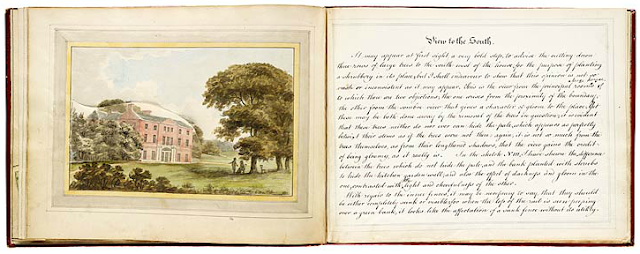 View to the South.
It may appear at first sight a very bold step, to advise the cutting down
three rows of large trees to the south west of the house, for the purpose of planting
a shrubbery in its place, but I shall endeavour to shew that this opinion is not so
rash or inconsistent as it may appear. This is the view from the principal rooms
to which there are two objections, the one arises from the proximity of the boundary,
the other from the sombre cast that gives a character of gloom to the place. Yet
these may be both done away by the removal of the trees in question, it is evident
that these trees neither do nor ever can hide the pale, which appears as perfectly
below their stems as if the trees were not there again, it is not so much from the
trees themselves, as from their lengthened shadows, that the view gains the credit
of being gloomy, as it really is. In the sketch No I have shewn the difference
between the trees which do not hide the pale, and the bank planted with shrubs
to hide the kitchen garden wall; and also the effect of darkness and gloom in the
one, contrasted with the light and chearfulness of the other.
With regard to the inner fence, it may be necessary to say, that they should
be either completely sunk or visible, for when the top of the rail is seen peeping
over a green bank, it looks like the affectation of a sunk fence without its utility.